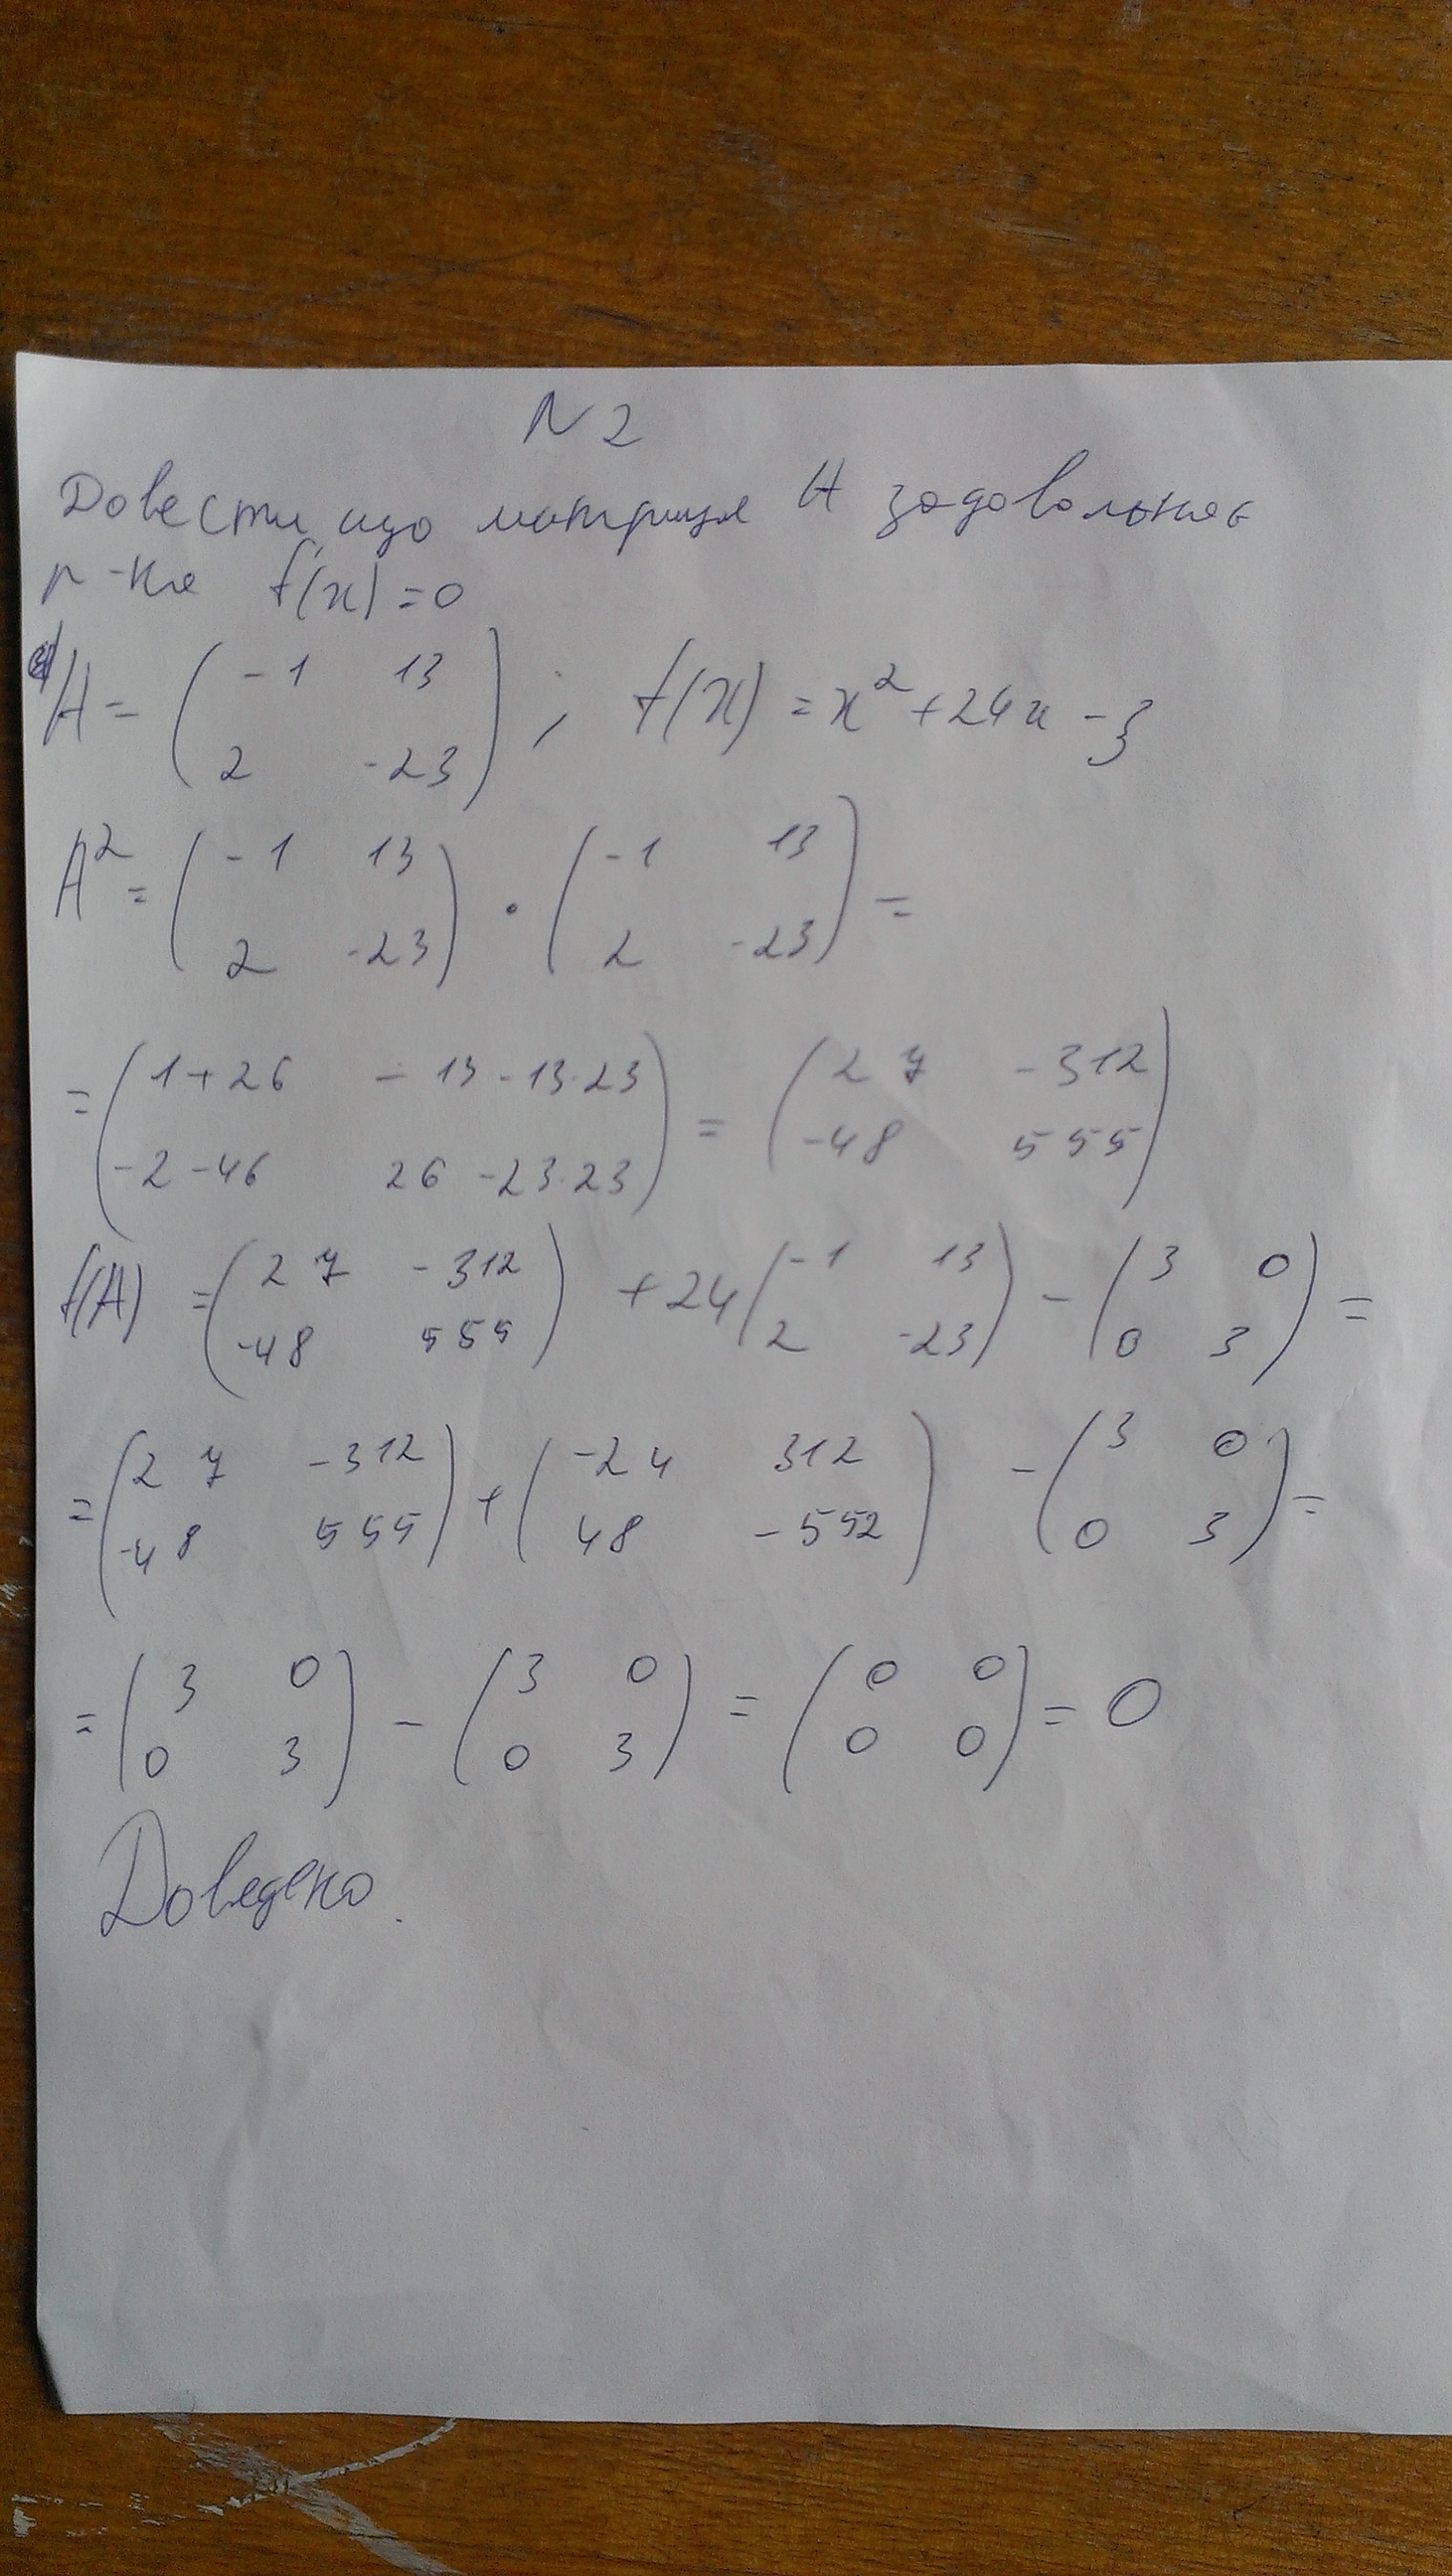 N 2
Довести, що матриця A задовольняє
р-ня f(x)=0
A = ( -1 13 ; 2 -23 ) ; f(x) = x² + 24x - 3
A² = ( -1 13 ; 2 -23 ) · ( -1 13 ; 2 -23 ) =
= ( 1+26 -13-13·23 ; -2-46 26-23·23 ) = ( 27 -312 ; -48 555 )
f(A) = ( 27 -312 ; -48 555 ) + 24 ( -1 13 ; 2 -23 ) - ( 3 0 ; 0 3 ) =
= ( 27 -312 ; -48 555 ) + ( -24 312 ; 48 -552 ) - ( 3 0 ; 0 3 ) =
= ( 3 0 ; 0 3 ) - ( 3 0 ; 0 3 ) = ( 0 0 ; 0 0 ) = 0
Доведено.